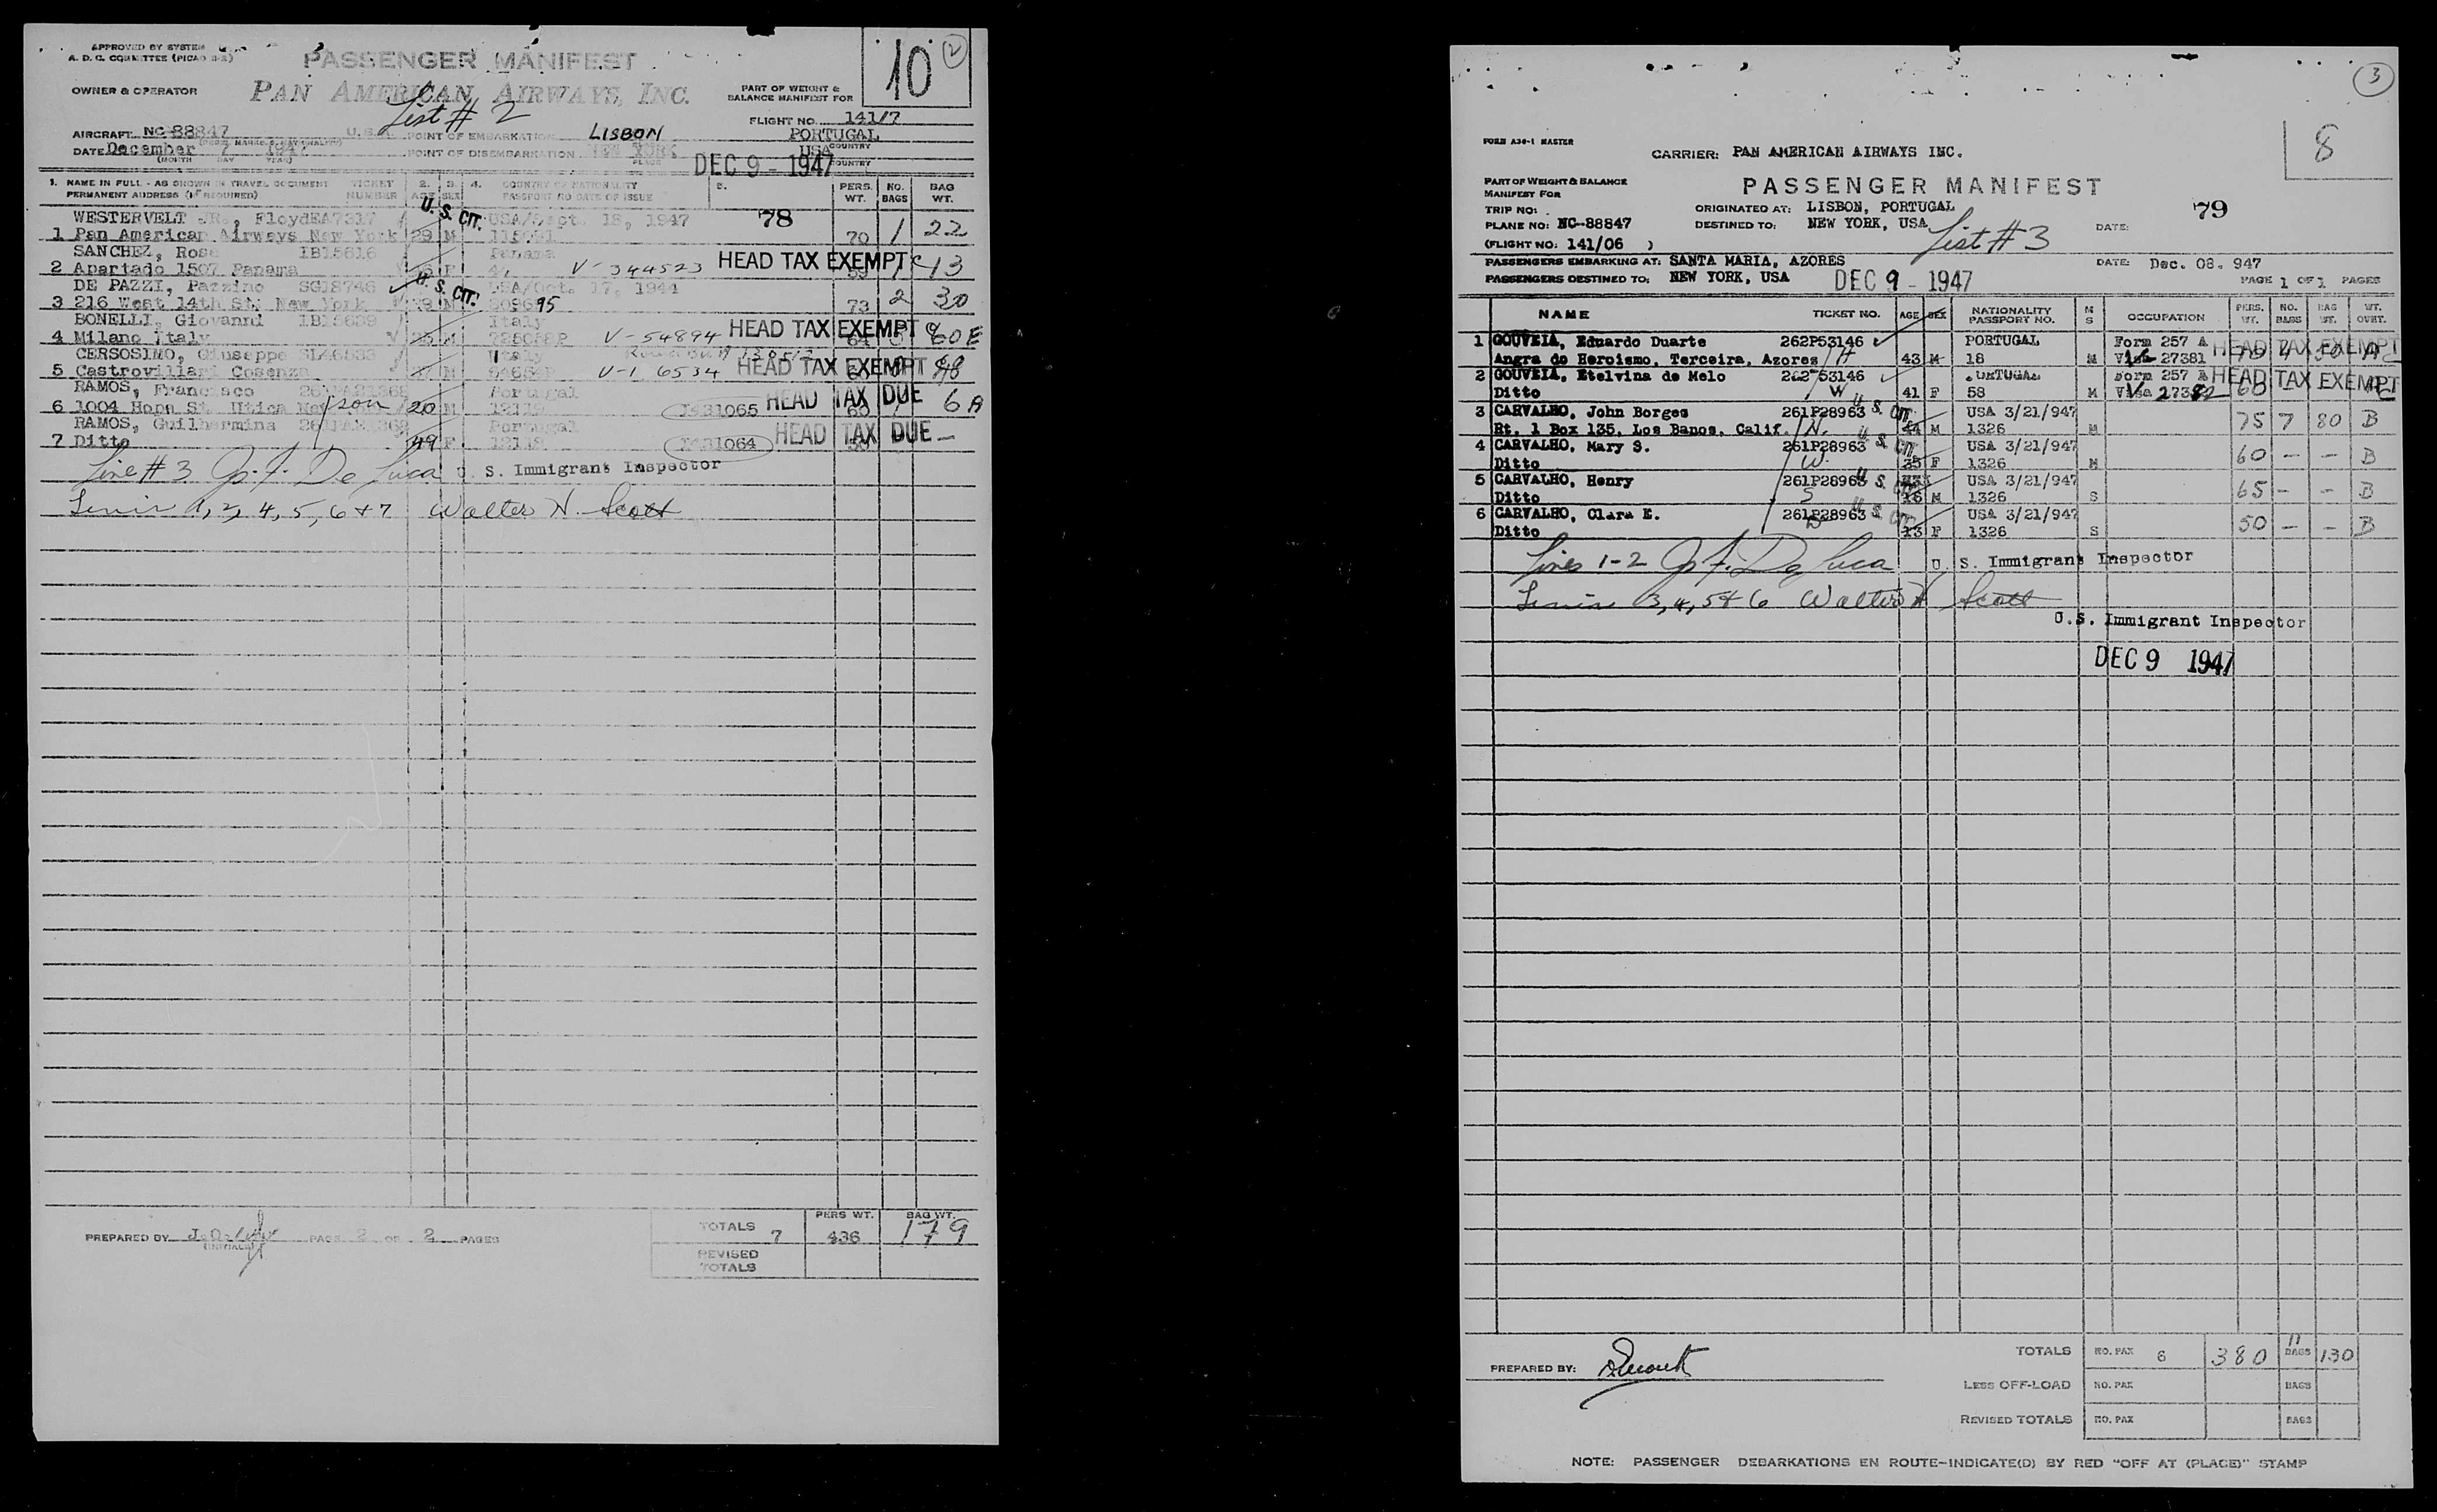 APPROVED BY SYSTEM
A. D. C. COMMITTEE (PICAO
PASSENGER MANIFEST
10
2
OWNER & OPERATOR
PAN AMERICAN AIRWAYS, INC.
PART OF WEIGHT &
BALANCE MANIFEST FOR
List # 2
FLIGHT NO. 141/7
AIRCRAFT NC-88847 U.S.A. POINT OF EMBARKATION LISBON PORTUGAL
COUNTRY
DATE December 7 1947 POINT OF DISEMBARKATION NEW YORK USA
(MONTH DAY YEAR) PLACE COUNTRY
DEC 9 - 1947
1. NAME IN FULL - AS SHOWN IN TRAVEL DOCUMENT TICKET 2. 3. 4. COUNTRY OF NATIONALITY PERS. NO. BAG
PERMANENT ADDRESS (IF REQUIRED) NUMBER AGE SEX PASSPORT NO DATE OF ISSUE WT. BAGS WT.
WESTERVELT JR., Floyd EA7317 U. S. CIT. USA/Sept. 18, 1947 78
1 Pan American Airways New York 29 M 70 1 22
SANCHEZ, Rose IB15616 Panama HEAD TAX EXEMPT
2 Apartado 1507 Panama F V-344523 1 13
DE PAZZI, Pazzino SG18746 U. S. CIT. USA/Oct. 17, 1944
3 216 West 14th St. New York M 95 73 2 30
BONELLI, Giovanni IB15639 Italy
4 Milano Italy M V-54894 HEAD TAX EXEMPT 64 60 E
CERSOSIMO, Giuseppe Italy
5 Castrovillari Cosenza M V-1 6534 HEAD TAX EXEMPT 48
RAMOS, Francisco Portugal
6 1004 Hope St. Utica New son 20 M I431065 HEAD TAX DUE 60 6 A
RAMOS, Guilhermina Portugal
7 Ditto 49 F 12118 I431064 HEAD TAX DUE —
Line # 3 J. F. De Luca U. S. Immigrant Inspector
1, 2, 4, 5, 6 & 7 Walter H. Scott
PREPARED BY
(INITIALS)
PAGE 2 OF 2 PAGES
PERS WT. BAG WT.
TOTALS 7 436 179
REVISED
TOTALS
3
8
FORM A34-1 MASTER
CARRIER: PAN AMERICAN AIRWAYS INC.
PART OF WEIGHT & BALANCE
MANIFEST FOR
PASSENGER MANIFEST
TRIP NO: ORIGINATED AT: LISBON, PORTUGAL 79
PLANE NO: NC-88847 DESTINED TO: NEW YORK, USA List # 3 DATE:
(FLIGHT NO: 141/06 )
PASSENGERS EMBARKING AT: SANTA MARIA, AZORES DATE: Dec. 08. 947
PASSENGERS DESTINED TO: NEW YORK, USA DEC 9 - 1947 PAGE 1 OF 1 PAGES
NAME TICKET NO. AGE SEX NATIONALITY M OCCUPATION PERS. NO. BAG WT.
PASSPORT NO. S WT. BAGS WT. OVHT.
1 GOUVEIA, Eduardo Duarte 262P53146 PORTUGAL Form 257 A HEAD TAX EXEMPT
Angra do Heroismo, Terceira, Azores H 43 M 18 M Visa 27381 4 50
2 GOUVEIA, Etelvina de Melo 262P53146 PORTUGAL Form 257 A HEAD TAX EXEMPT
Ditto W 41 F 58 M Visa 27382 60 C
3 CARVALHO, John Borges 261P28963 U. S. CIT. USA 3/21/947
Rt. 1 Box 135, Los Banos, Calif. H. 44 M 1326 M 75 7 80 B
4 CARVALHO, Mary S. 261P28963 U. S. CIT. USA 3/21/947
Ditto W. 35 F 1326 M 60 — — B
5 CARVALHO, Henry 261P28963 U. S. CIT. USA 3/21/947
Ditto S 16 M 1326 S 65 — — B
6 CARVALHO, Clara E. 261P28963 U. S. CIT. USA 3/21/947
Ditto D 13 F 1326 S 50 — — B
Lines 1-2 J. F. De Luca U. S. Immigrant Inspector
3, 4, 5 & 6 Walter H Scott
U.S. Immigrant Inspector
DEC 9 1947
PREPARED BY:
TOTALS NO. PAX 6 380 11 BAGS 130
LESS OFF-LOAD NO. PAX BAGS
REVISED TOTALS NO. PAX BAGS
NOTE: PASSENGER DEBARKATIONS EN ROUTE-INDICATE(D) BY RED "OFF AT (PLACE)" STAMP